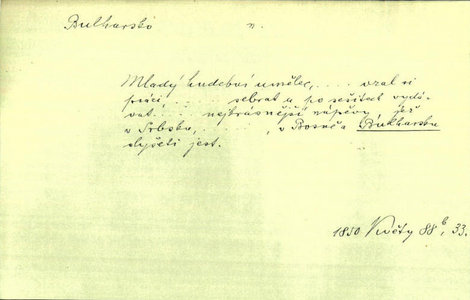 Bulharsko n.
Mladý hudební umělec, . . . . vzal si
práci . . . sebrat a po sešitech vydá-
vat . . . nejkrásnější nápěvy, jež
v Srbsku, . . . . , v Bosně a Bulharsku
slyšeti jest.
1850 Květy 88 b, 33.